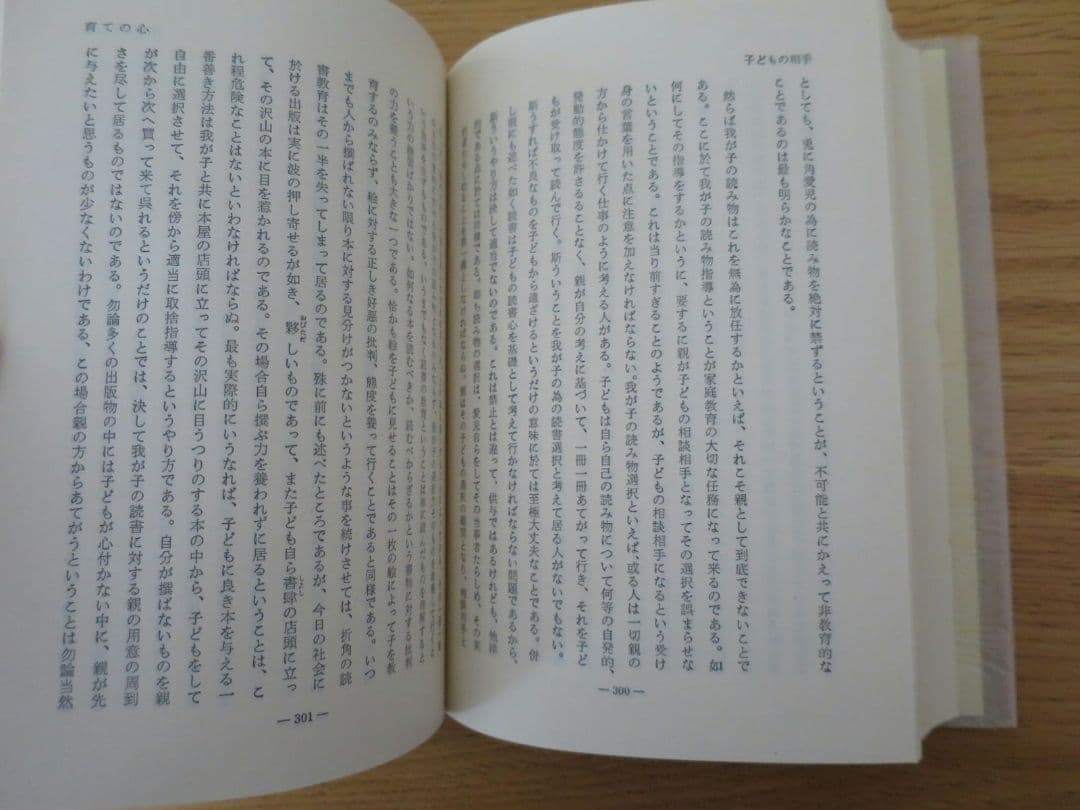 子どもの相手
としても、兎に角愛児の為に読み物を絶対に禁ずるということが、不可能と共にかえって非教育的な
ことであるのは最も明らかなことである。
然らば我が子の読み物はこれを無為に放任するかといえば、それこそ親として到底できないことで
ある。ここに於て我が子の読み物指導ということが家庭教育の大切な任務になって来るのである。如
何にしてその指導をするかというに、要するに親が子どもの相談相手となってその選択を誤まらせな
いということである。これは当り前すぎることのようであるが、子どもの相談相手になるという受け
身の言葉を用いた点に注意を加えなければならない。我が子の読み物選択といえば、或る人は一切親の
方から仕かけて行く仕事のように考える人がある。子どもは自ら自己の読み物について何等の自発的、
発動的態度を許さるることなく、親が自分の考えに基づいて、一冊一冊あてがって行き、それを子ど
もが受け取って読んで行く。斯ういうことを我が子の為の読書選択と考えて居る人がないでもない。
斯うすれば不良なものを子どもから遠ざけるというだけの意味に於ては至極大丈夫なことである。併
し前にも述べた如く読書は子どもの読書心を基礎として考えて行かなければならない問題であるから、
斯ういうやり方は決して適当でないのである。これは禁止とは違って、供与ではあるけれども、他律
的である点に於ては同様である。即ち読み物の選択は、愛児自らをしてその当事者たらしめ、その実
― 300 ―
育ての心
いう力の練習ばかりではない。如何なる本を読むべきか、読むべからざるかという書物に対する批判
の力を養うことも大きな一つである。恰かも絵を子どもに見せることはその一枚の絵によって子を教
育するのみならず、絵に対する正しき好悪の批判、態度を養って行くことであると同様である。いつ
までも人から撰ばれない限り本に対する見分けがつかないというような事を続けさせては、折角の読
書教育はその一半を失ってしまって居るのである。殊に前にも述べたところであるが、今日の社会に
於ける出版は実に波の押し寄せるが如き、夥しいものであって、また子ども自ら書肆の店頭に立っ
て、その沢山の本に目を惹かれるのである。その場合自ら撰ぶ力を養われずに居るということは、こ
れ程危険なことはないといわなければならぬ。最も実際的にいうなれば、子どもに良き本を与える一
番善き方法は我が子と共に本屋の店頭に立ってその沢山に目うつりのする本の中から、子どもをして
自由に選択させて、それを傍から適当に取捨指導するというやり方である。自分が撰ばないものを親
が次から次へ買って来て呉れるというだけのことでは、決して我が子の読書に対する親の用意の周到
さを尽して居るものではないのである。勿論多くの出版物の中には子どもが心付かない中に、親が先
に与えたいと思うものが少なくないわけである、この場合親の方からあてがうということは勿論当然
― 301 ―